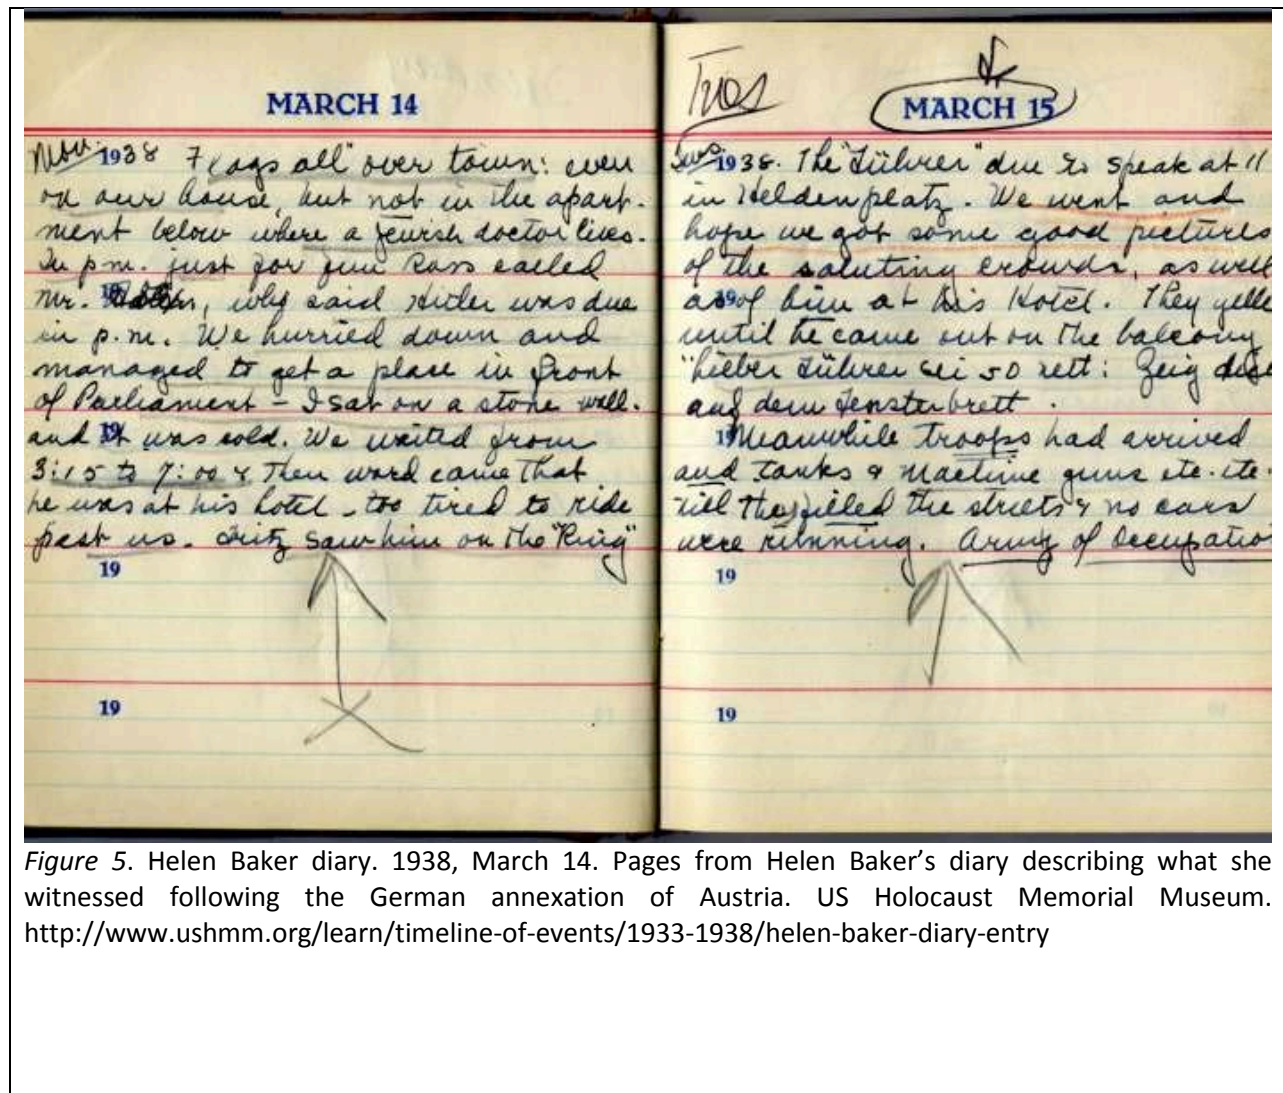 MARCH 14
Mon. 1938 Flags all over town: even
on our house, but not in the apart-
ment below where a Jewish doctor lives.
In p.m. just for fun Ross called
mr. who said Hitler was due
in p.m. We hurried down and
managed to get a place in front
of Parliament - I sat on a stone wall.
and it was cold. We waited from
3:15 to 7:00 & then word came that
he was at his hotel - too tired to ride
past us. Fritz saw him on the "Ring"
19
19
Tues
MARCH 15
Tues. 1938. The "Führer" due to speak at 11
in Heldenplatz. We went and
hope we got some good pictures
of the saluting crowds, as well
as of him at his Hotel. They yelle
until he came out on the balcony
"Lieber Führer sei so nett: Zeig dich
auf dem Fensterbrett.
19 Meanwhile troops had arrived
and tanks & machine guns etc. etc.
till they filled the streets & no cars
were running. Army of Occupatio
19
19
Figure 5. Helen Baker diary. 1938, March 14. Pages from Helen Baker’s diary describing what she
witnessed following the German annexation of Austria. US Holocaust Memorial Museum.
http://www.ushmm.org/learn/timeline-of-events/1933-1938/helen-baker-diary-entry